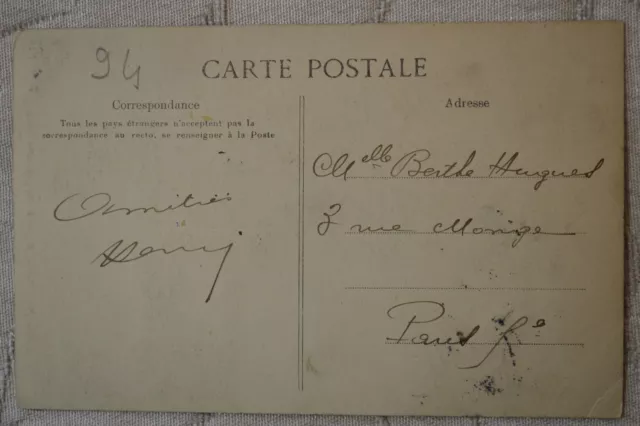 94
CARTE POSTALE
Correspondance
Tous les pays étrangers n'acceptent pas la
correspondance au recto, se renseigner à la Poste
Amitiés
Henry
Adresse
Mlle Berthe Hugues
3 rue Monge
Paris 5e